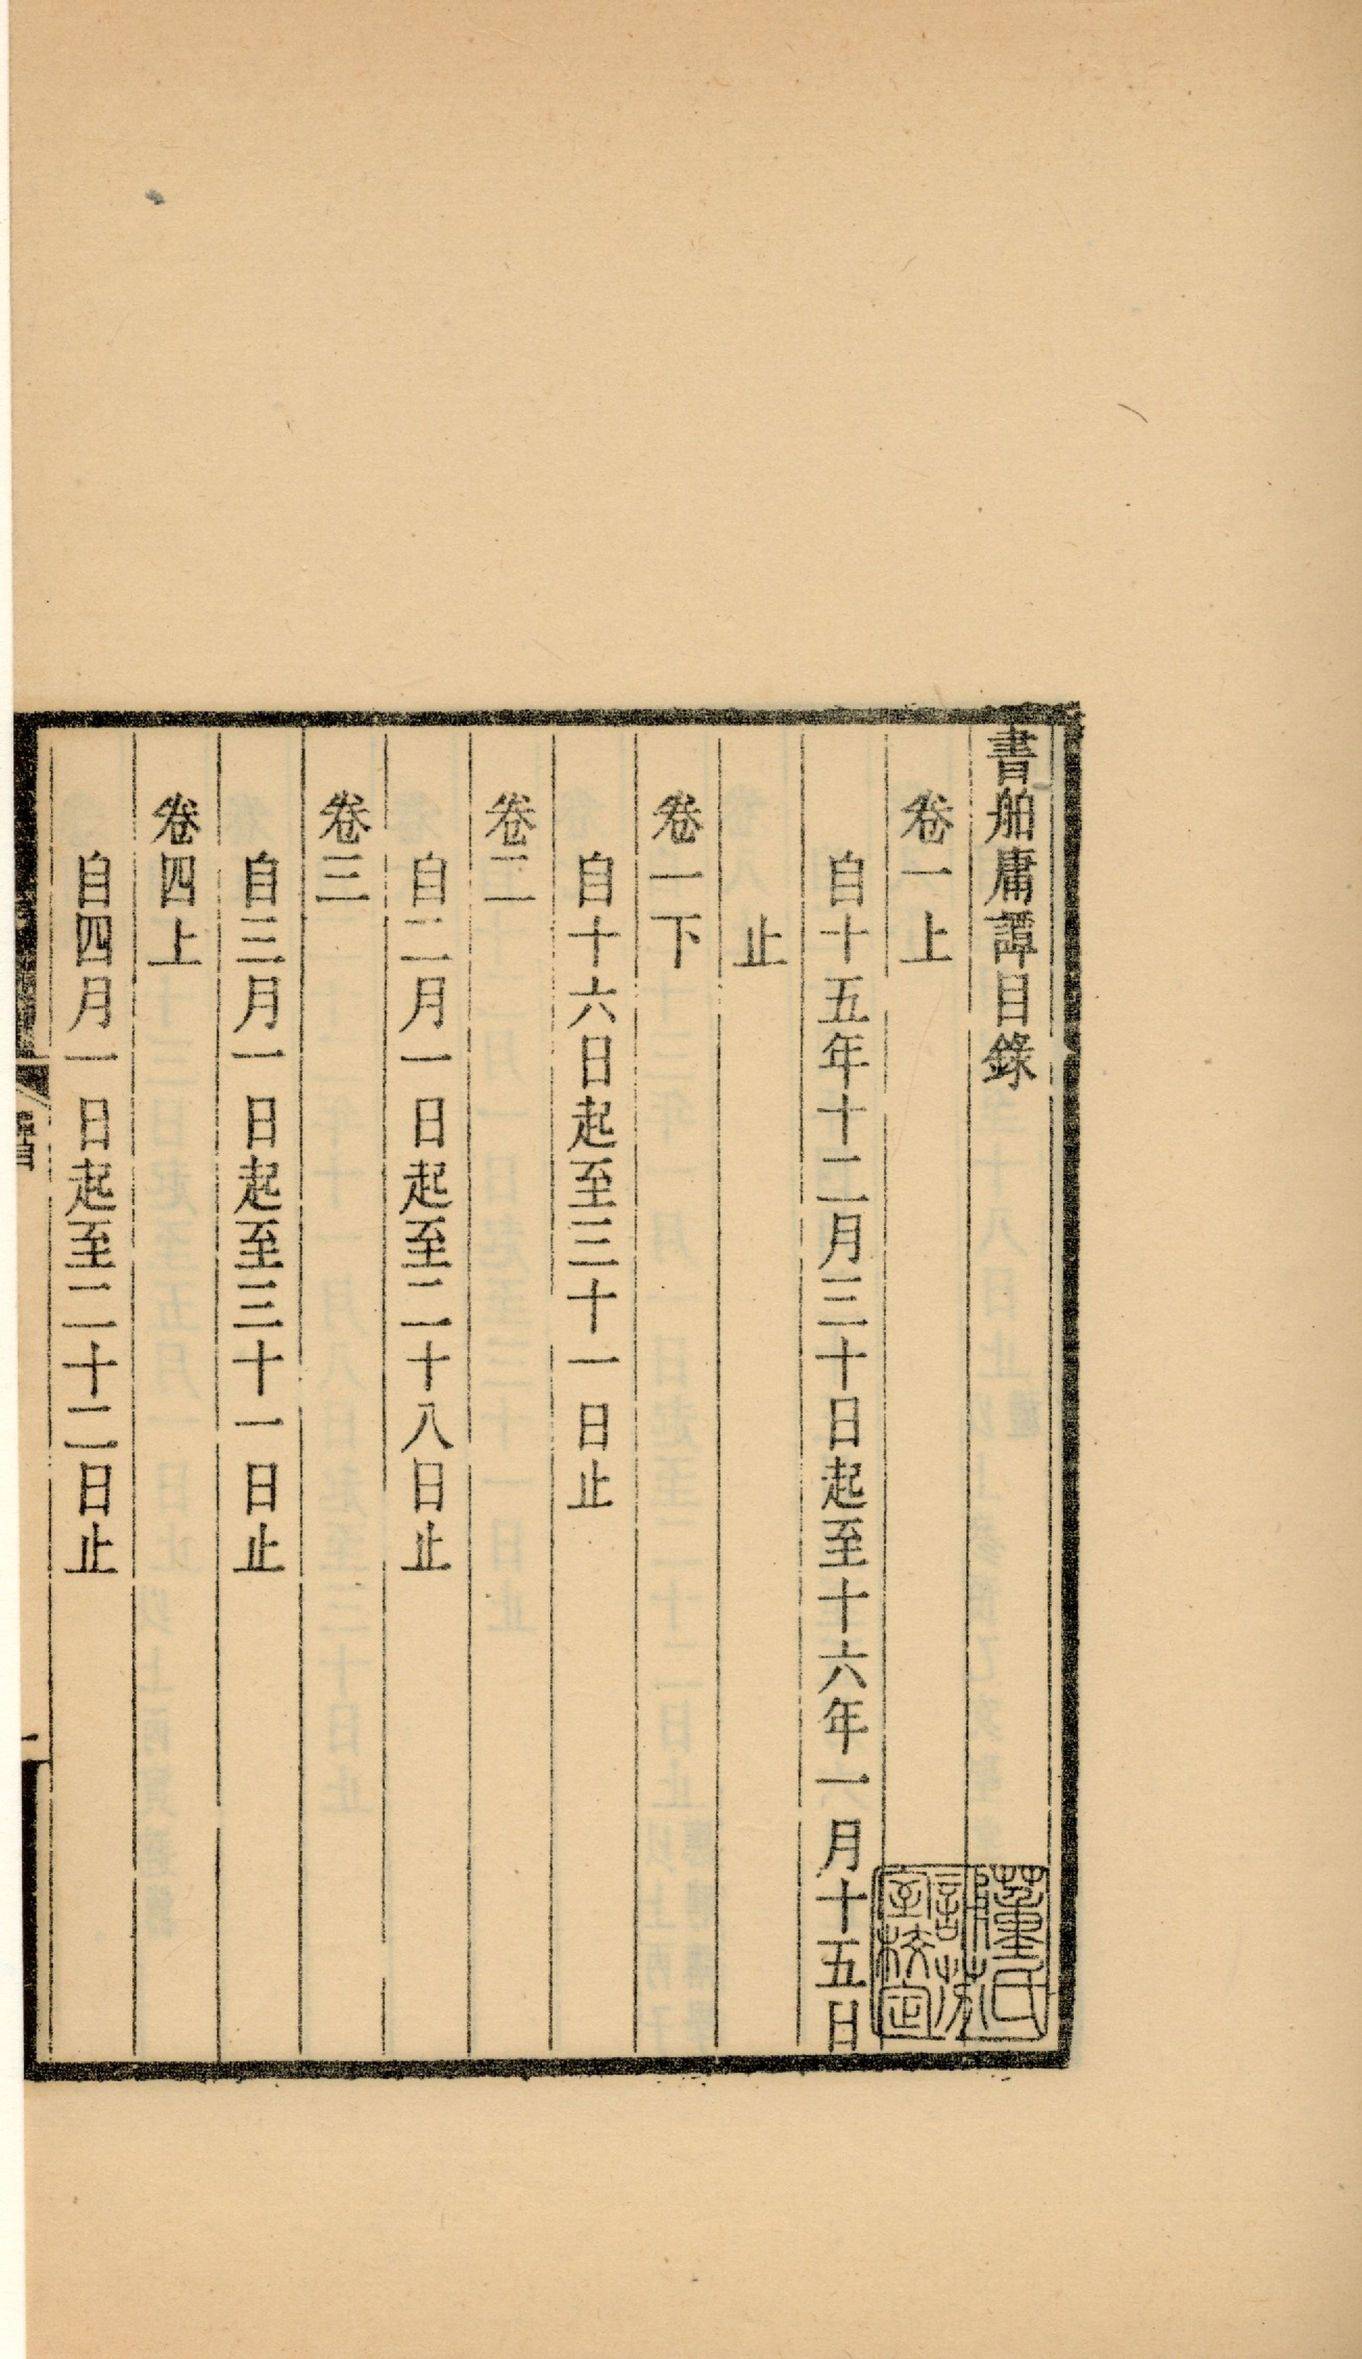 書舶庸譚目錄
卷一上
自十五年十二月三十日起至十六年一月十五日
止
卷一下
自十六日起至三十一日止
卷二
自二月一日起至二十八日止
卷三
自三月一日起至三十一日止
卷四上
自四月一日起至二十二日止
董氏
誦芬
室校定